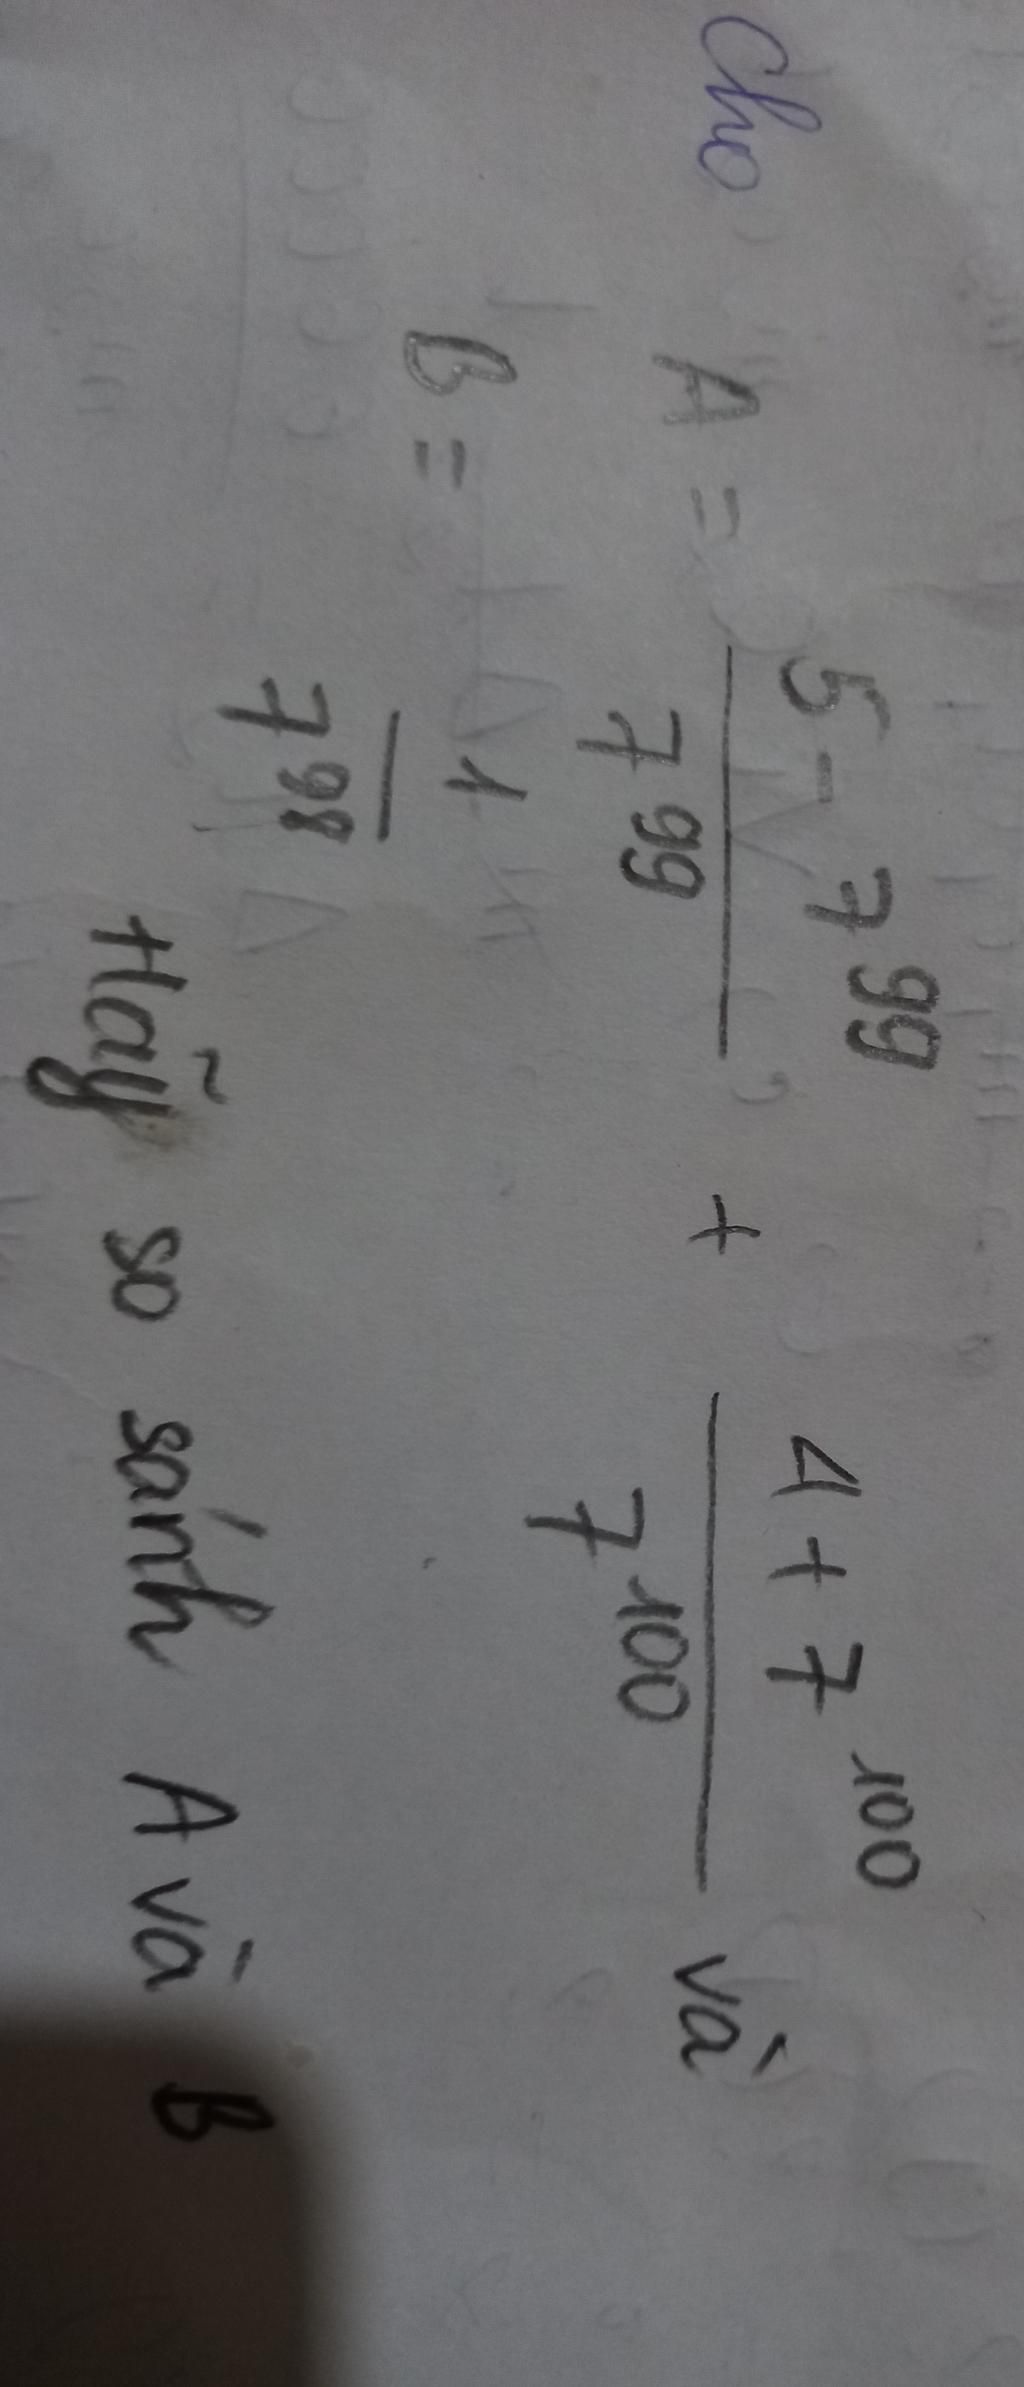 Cho A = (5 - 7^99)/(7^99) + (4 + 7^100)/(7^100) và
B = 1/(7^98)
Hãy so sánh A và B